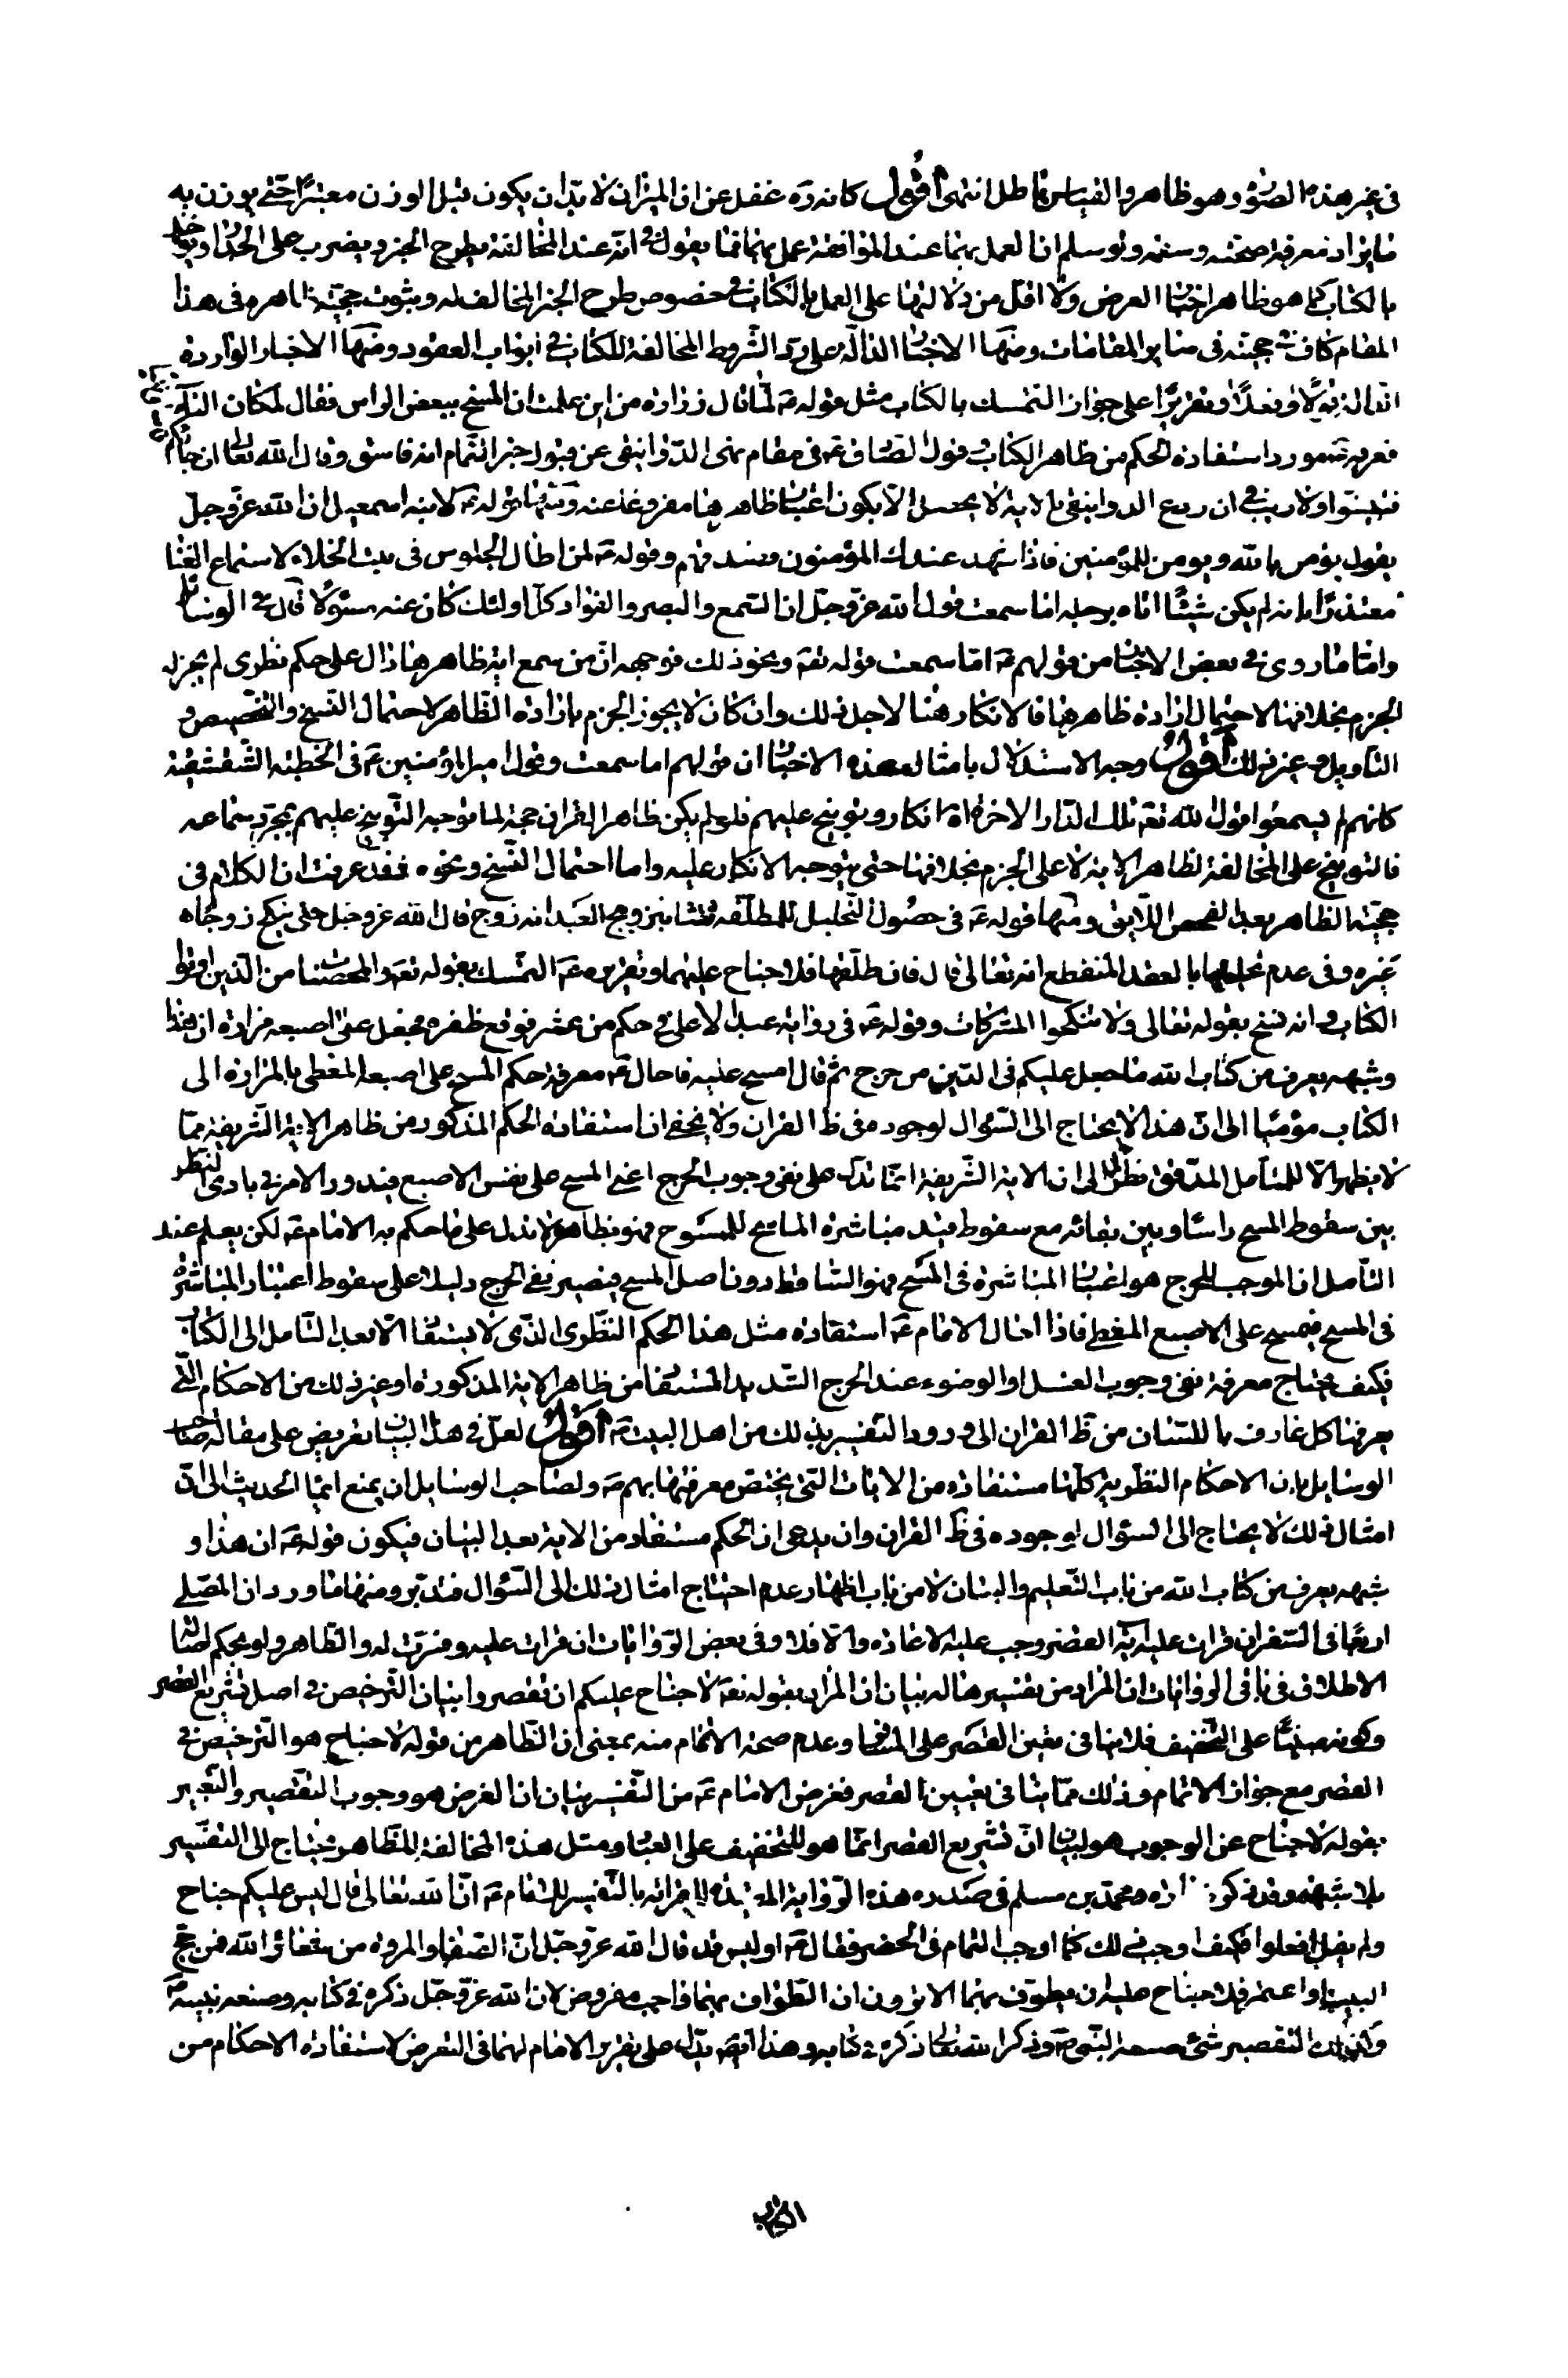 في غير هذه الصور وهو ظاهر والقياس باطل انتهى أقول كانه ره غفل عن ان الميزان لا بد ان يكون قبل الوزن معتبرا حتى يوزن به
ما يراد معرفة صحته وسقمه ولو سلم ان العمل بهما عند الموافقة عمل بهما فما يقول في انه عند المخالفة يطرح الخبر ويضرب على الجدار ويؤخذ
بالكتاب كما هو ظاهر اخبار العرض ولا اقل من دلالتها على العمل بالكتاب في خصوص طرح الخبر المخالف له وبثوت حجية ظاهره في هذا
المقام كاف في حجيته في ساير المقامات ومنها الاخبار الدالة على رد الشروط المخالفة للكتاب في ابواب العقود ومنها الاخبار الواردة
الدالة قولا وفعلا وتقريرا على جواز التمسك بالكتاب مثل قوله ع لما قال زرارة من اين علمت ان المسح ببعض الراس فقال لمكان الباء
فعرفه ع مورد استفادة الحكم من ظاهر الكتاب وقول الصادق ع في مقام نهى الدوانيقي عن قبول خبر النمام انه فاسق وقال الله تعالى ان جاءكم
فتبينوا ولا ريب في ان ردع الدوانيقي بالاية لا يحصل الا بكون اعتبار ظاهرها مفروغا عنه ومنها قوله ع لابنه اسمعيل ان الله عز وجل
يقول يؤمن بالله ويومن للمؤمنين فاذا شهد عندك المؤمنون فصدقهم وقوله ع لمن اطال الجلوس في بيت الخلاء لاستماع الغنا
معتذرا بانه لم يكن شيئا اتاه برجله اما سمعت قول الله عز وجل ان السمع والبصر والفؤاد كل اولئك كان عنه مسئولا قال في الوسائل
واما ما روى في بعض الاخبار من قولهم ع اما سمعت قوله تعه ونحو ذلك فوجهه ان من سمع اية ظاهرها دال على حكم نظرى لم يجز له
الجزم بخلافها لاحتمال ارادة ظاهرها فالانكار هنا لاجل ذلك وان كان لا يجوز الجزم بارادة الظاهر لاحتمال النسخ والتخصيص و
التاويل وغير ذلك أقول وجه الاستدلال بامثال هذه الاخبار ان قولهم اما سمعت وقول امير المؤمنين ع في الخطبة الشقشقية
كانهم لم يسمعوا قول الله تعه تلك الدار الاخرة اه انكار وتوبيخ عليهم فلو لم يكن ظاهر القران حجة لما توجه التوبيخ عليهم بمجرد سماعه
فالتوبيخ على المخالفة لظاهر الاية لا على الجزم بخلافها حتى يتوجه الانكار عليه واما احتمال النسخ ونحوه فقد عرفت ان الكلام في
حجية الظاهر بعد الفحص اللايق ومنها قوله ع في حصول التحليل للمطلقة ثلثا بتزويج العبد انه زوج قال الله عز وجل حتى تنكح زوجا
غيره وفي عدم تحليلها بالعقد المنقطع انه تعالى قال فان طلقها فلا جناح عليهما وتقريره ع التمسك بقوله تعه والمحصنات من الذين اوتوا
الكتاب وانه نسخ بقوله تعالى ولا تنكحوا المشركات وقوله ع في رواية عبد الاعلى في حكم من عثر فوقع ظفره فجعل على اصبعه مرارة ان هذا
وشبهه يعرف من كتاب الله ما جعل عليكم في الدين من حرج ثم قال امسح عليه فاحال ع معرفة حكم المسح على اصبعه المغطى بالمرارة الى
الكتاب مؤميا الى ان هذا لا يحتاج الى السؤال لوجوده في ظ القران ولا يخفى ان استفادة الحكم المذكور من ظاهر الاية الشريفة مما
لا يظهر الا للمتأمل المدقق نظرا الى ان الاية الشريفة انما تدل على نفى وجوب الحرج اعنى المسح على نفس الاصبع فيدور الامر في بادى النظر
بين سقوط المسح راسا وبين بقائه مع سقوط قيد مباشرة الماسح للممسوح فهو بظاهره لا يدل على ما حكم به الامام ع لكن يعلم عند
التأمل ان الموجب للحرج هو اعتبار المباشرة في المسح فهو الساقط دون اصل المسح فيصير نفى الحرج دليلا على سقوط اعتبار المباشرة
في المسح فيمسح على الاصبع المغطى فاذا احال الامام ع استفادة مثل هذا الحكم النظرى الذى لا يستفاد الا بعد التامل الى الكتاب
فكيف يحتاج معرفة نفى وجوب الغسل او الوضوء عند الحرج الشديد المستفاد من ظاهر الاية المذكورة او غير ذلك من الاحكام التى
يعرفها كل عارف باللسان من ظ القران الى ورود التفسير بذلك من اهل البيت ع أقول لعل في هذا البيان تعريض على مقالة صاحب
الوسايل بان الاحكام النظرية كلها مستفادة من الايات التى يختص معرفتها بهم ع ولصاحب الوسايل ان يمنع ايماء الحديث الى ان
امثال ذلك لا يحتاج الى السؤال لوجوده في ظ القران وان يدعى ان الحكم مستفاد من الاية بعد البيان فيكون قوله ع ان هذا و
شبهه يعرف من كتاب الله من باب التعليم والبيان لا من باب اظهار عدم احتياج امثال ذلك الى السؤال فتدبر ومنها ما ورد ان المصلى
اربعا في السفر ان قرات عليه آية القصر وجب عليه الاعادة والا فلا وفي بعض الروايات ان قرات عليه وفسرت له والظاهر ولو بحكم اصالة
الاطلاق في باقى الروايات ان المراد من تفسيرها له بيان ان المراد بقوله تعه لا جناح عليكم ان تقصروا بيان الترخيص في اصل تشريع القصر
وكونه مبنيا على التخفيف فلا ينافى تعين القصر على المسافر وعدم صحة الاتمام منه بمعنى ان الظاهر من قوله لا جناح هو الترخيص في
القصر مع جواز الاتمام وذلك مما ينافى تعيين القصر فغرض الامام ع من التفسير بيان ان الغرض هو وجوب التقصير والتعبير
بقوله لا جناح عن الوجوب هو لبيان ان تشريع القصر انما هو للتخفيف على العباد ومثل هذه المخالفة للظاهر يحتاج الى التفسير
بلا شبهة وقد ذكر زرارة ومحمد بن مسلم في صدر هذه الرواية بالتفسير للامام ع ان الله تعالى قال ليس عليكم جناح
ولم يقل افعلوا فكيف اوجب ذلك كما اوجب التمام في الحضر فقال ع اوليس قد قال الله عز وجل ان الصفا والمروة من شعائر الله فمن حج
البيت او اعتمر فلا جناح عليه ان يطوف بهما الا ترون ان الطواف بهما واجب مفروض لان الله عز وجل ذكره في كتابه وصنعه نبيه ص
وكذلك التقصير شئ صنعه النبي ص وذكر الله تعالى ذكره في كتابه وهذا ايضا يدل على تقرير الامام لهما في التعرض لاستفادة الاحكام من
الكتاب